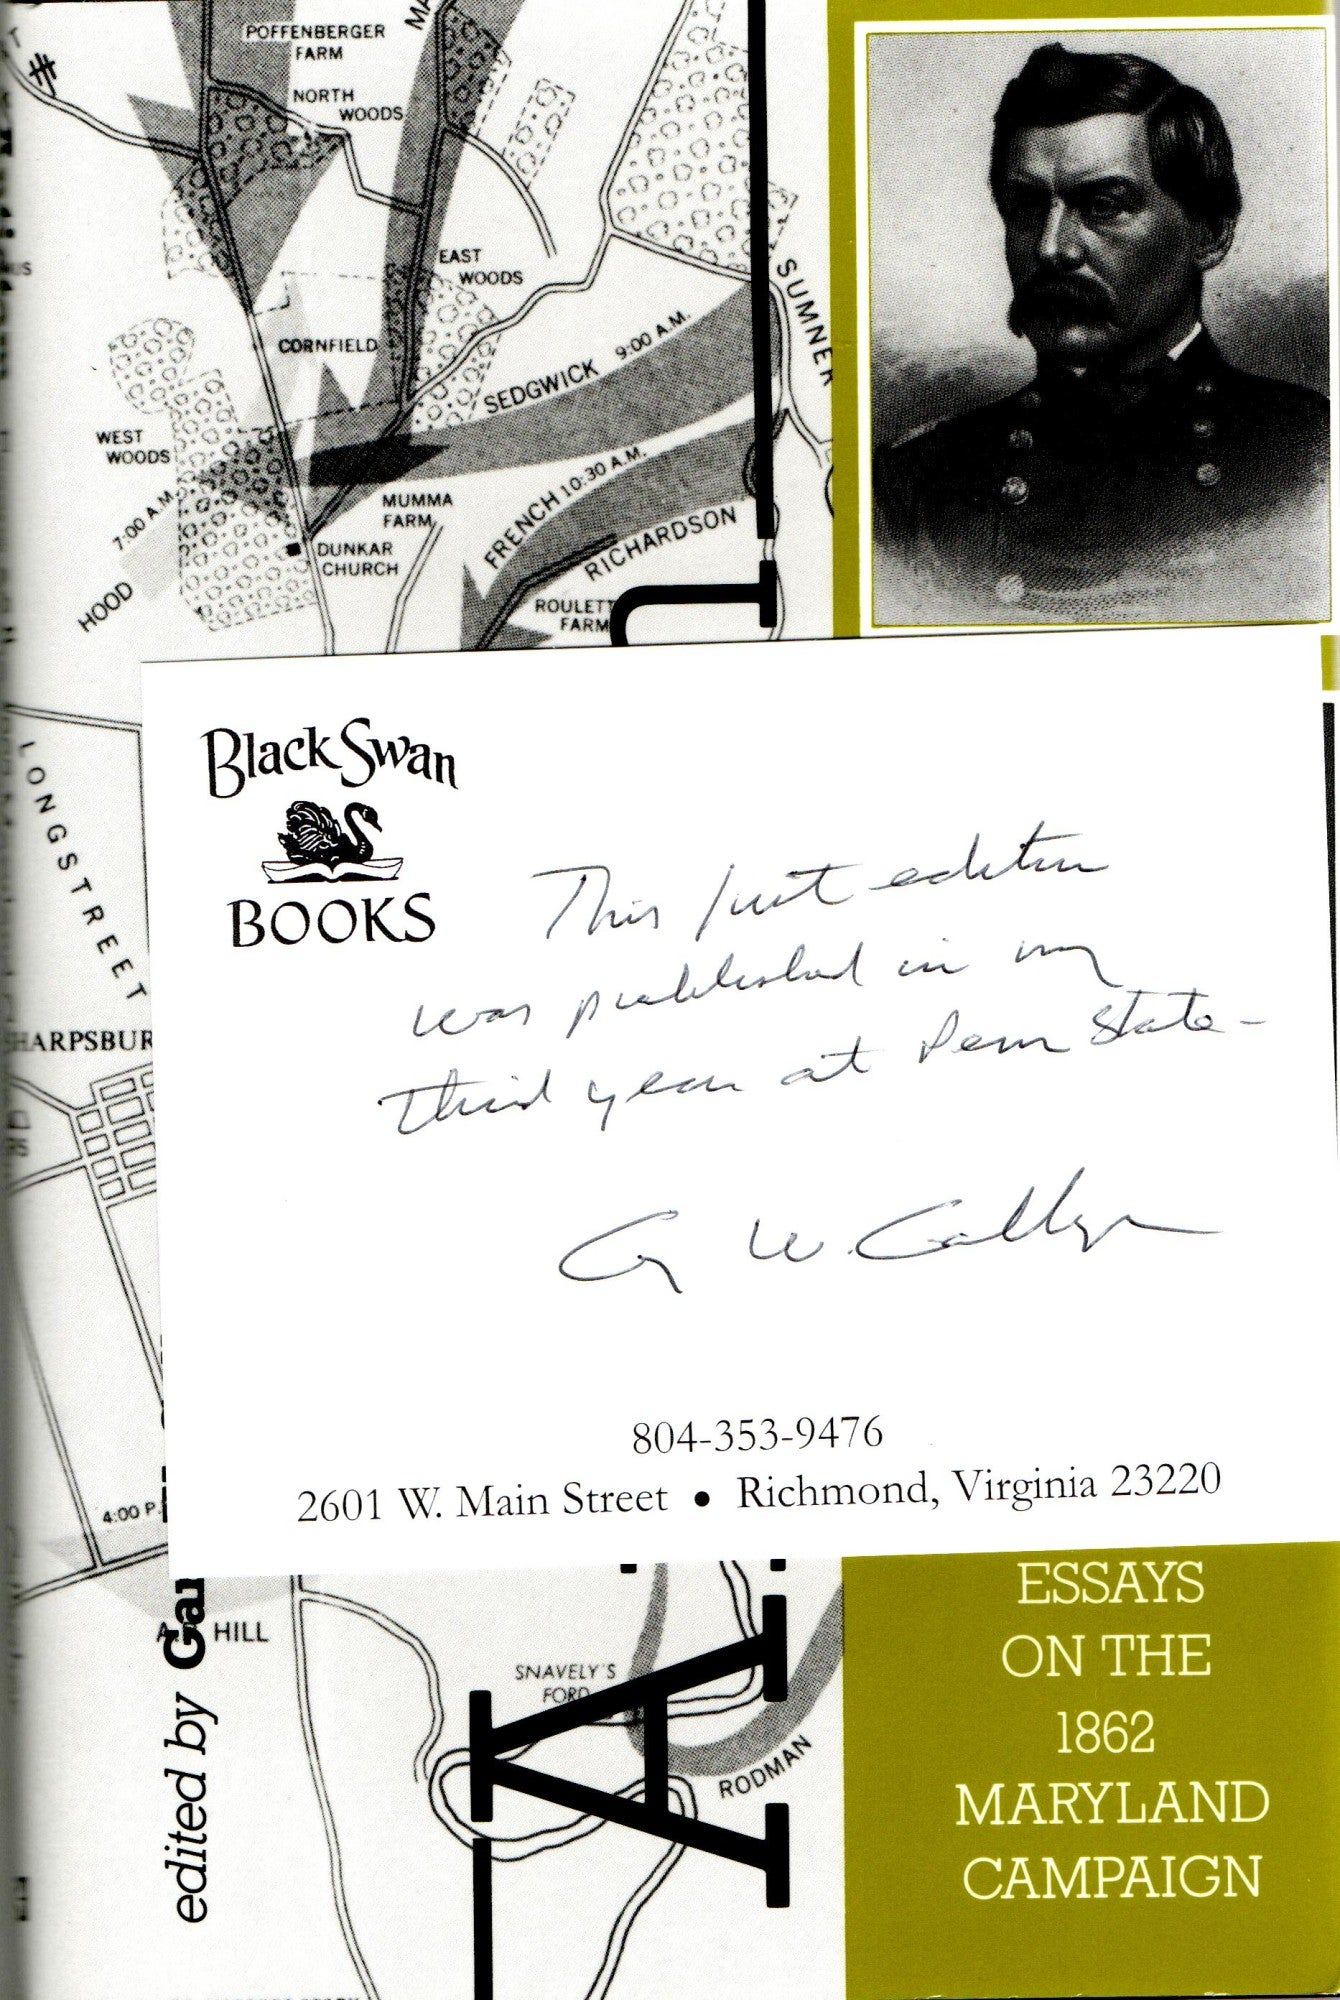 POFFENBERGER
FARM
NORTH
WOODS
EAST
WOODS
CORNFIELD
SUMNER
SEDGWICK 9:00 A.M.
WEST
WOODS
7:00 A.M.
HOOD
MUMMA
FARM
FRENCH 10:30 A.M.
RICHARDSON
DUNKAR
CHURCH
ROULETT
FARM
LONGSTREET
HARPSBUR
Black Swan
BOOKS
This first edition
was published in my
third year at Penn State –
G W. Gallagher
804-353-9476
2601 W. Main Street • Richmond, Virginia 23220
4:00 P.
HILL
edited by Gar
SNAVELY'S
FORD
RODMAN
A
ESSAYS
ON THE
1862
MARYLAND
CAMPAIGN